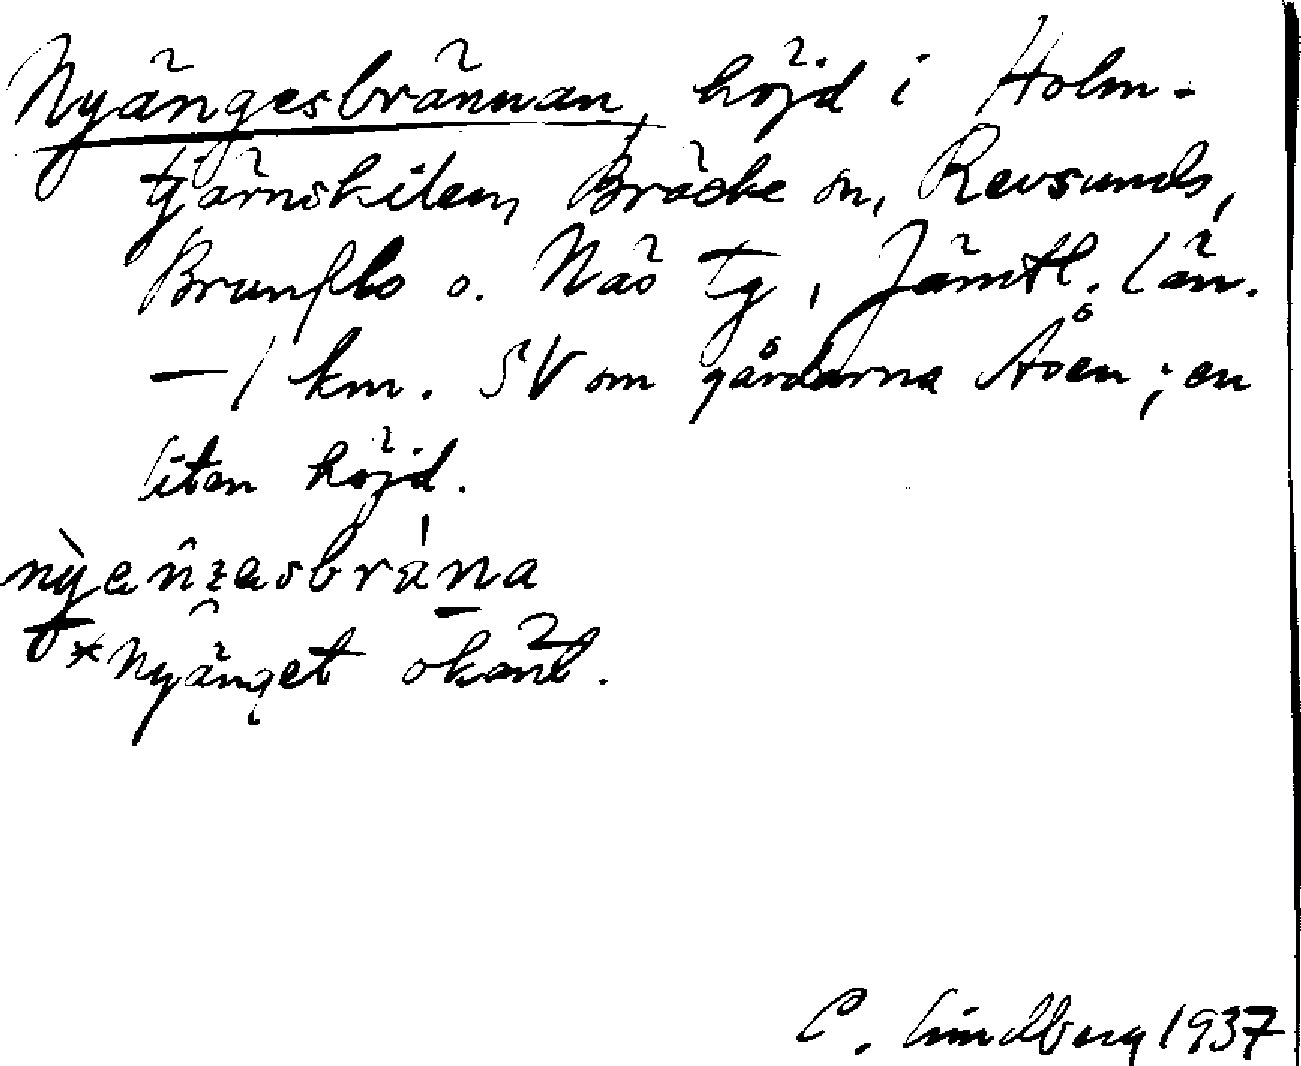 Nyängesbrännan, höjd i Holm-
tjärnskilen, Bräcke sn, Revsunds,
Brunflo o. Näs tg, Jämtl. län.
— 1 km. SV om gårdarna Åsen; en
liten höjd.
*Nyänget okänt.
C. Lindberg 1937